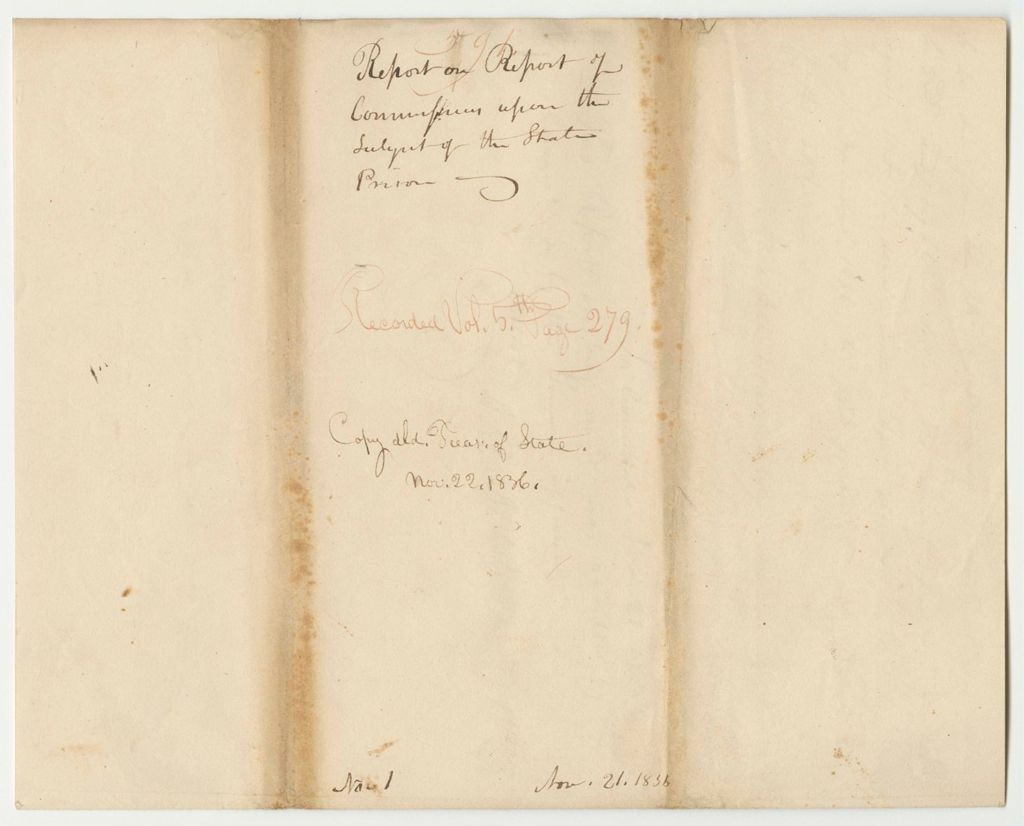 Report on Report of
Commissioners upon the
Subject of the State
Prison
Recorded Vol. 5.th Page 279.
Copy dld. Treas. of State.
Nov. 22. 1836.
No. 1 Nov. 21. 1836